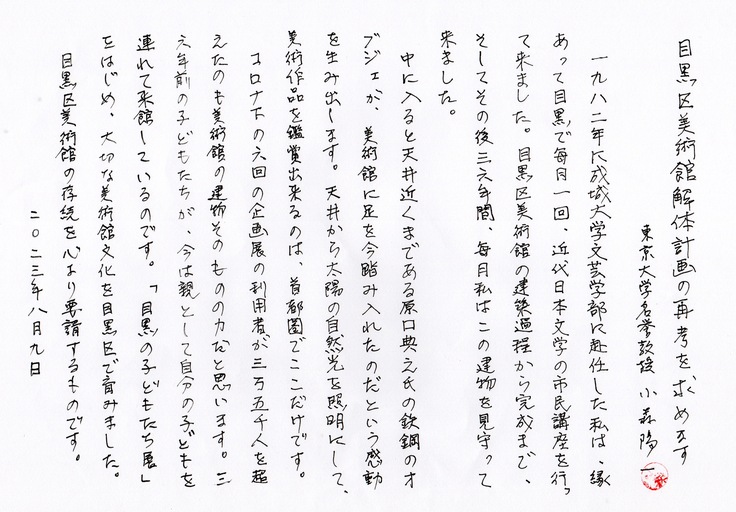 目黒区美術館解体計画の再考を求めます
東京大学名誉教授 小森陽一
一九八二年に成城大学文芸学部に赴任した私は、縁
あって目黒で毎月一回、近代日本文学の市民講座を行っ
て来ました。目黒区美術館の建築過程から完成まで、
そしてその後三六年間、毎月私はこの建物を見守って
来ました。
中に入ると天井近くまである原口典之氏の鉄鋼のオ
ブジェが、美術館に足を今踏み入れたのだという感動
を生み出します。天井から太陽の自然光を照明にして、
美術作品を鑑賞出来るのは、首都圏でここだけです。
コロナ下の六回の企画展の利用者が三万五千人を超
えたのも美術館の建物そのものの力だと思います。三
六年前の子どもたちが、今は親として自分の子どもを
連れて来館しているのです。「目黒の子どもたち展」
をはじめ、大切な美術館文化を目黒区で育みました。
目黒区美術館の存続を心より要請するものです。
二〇二三年八月九日